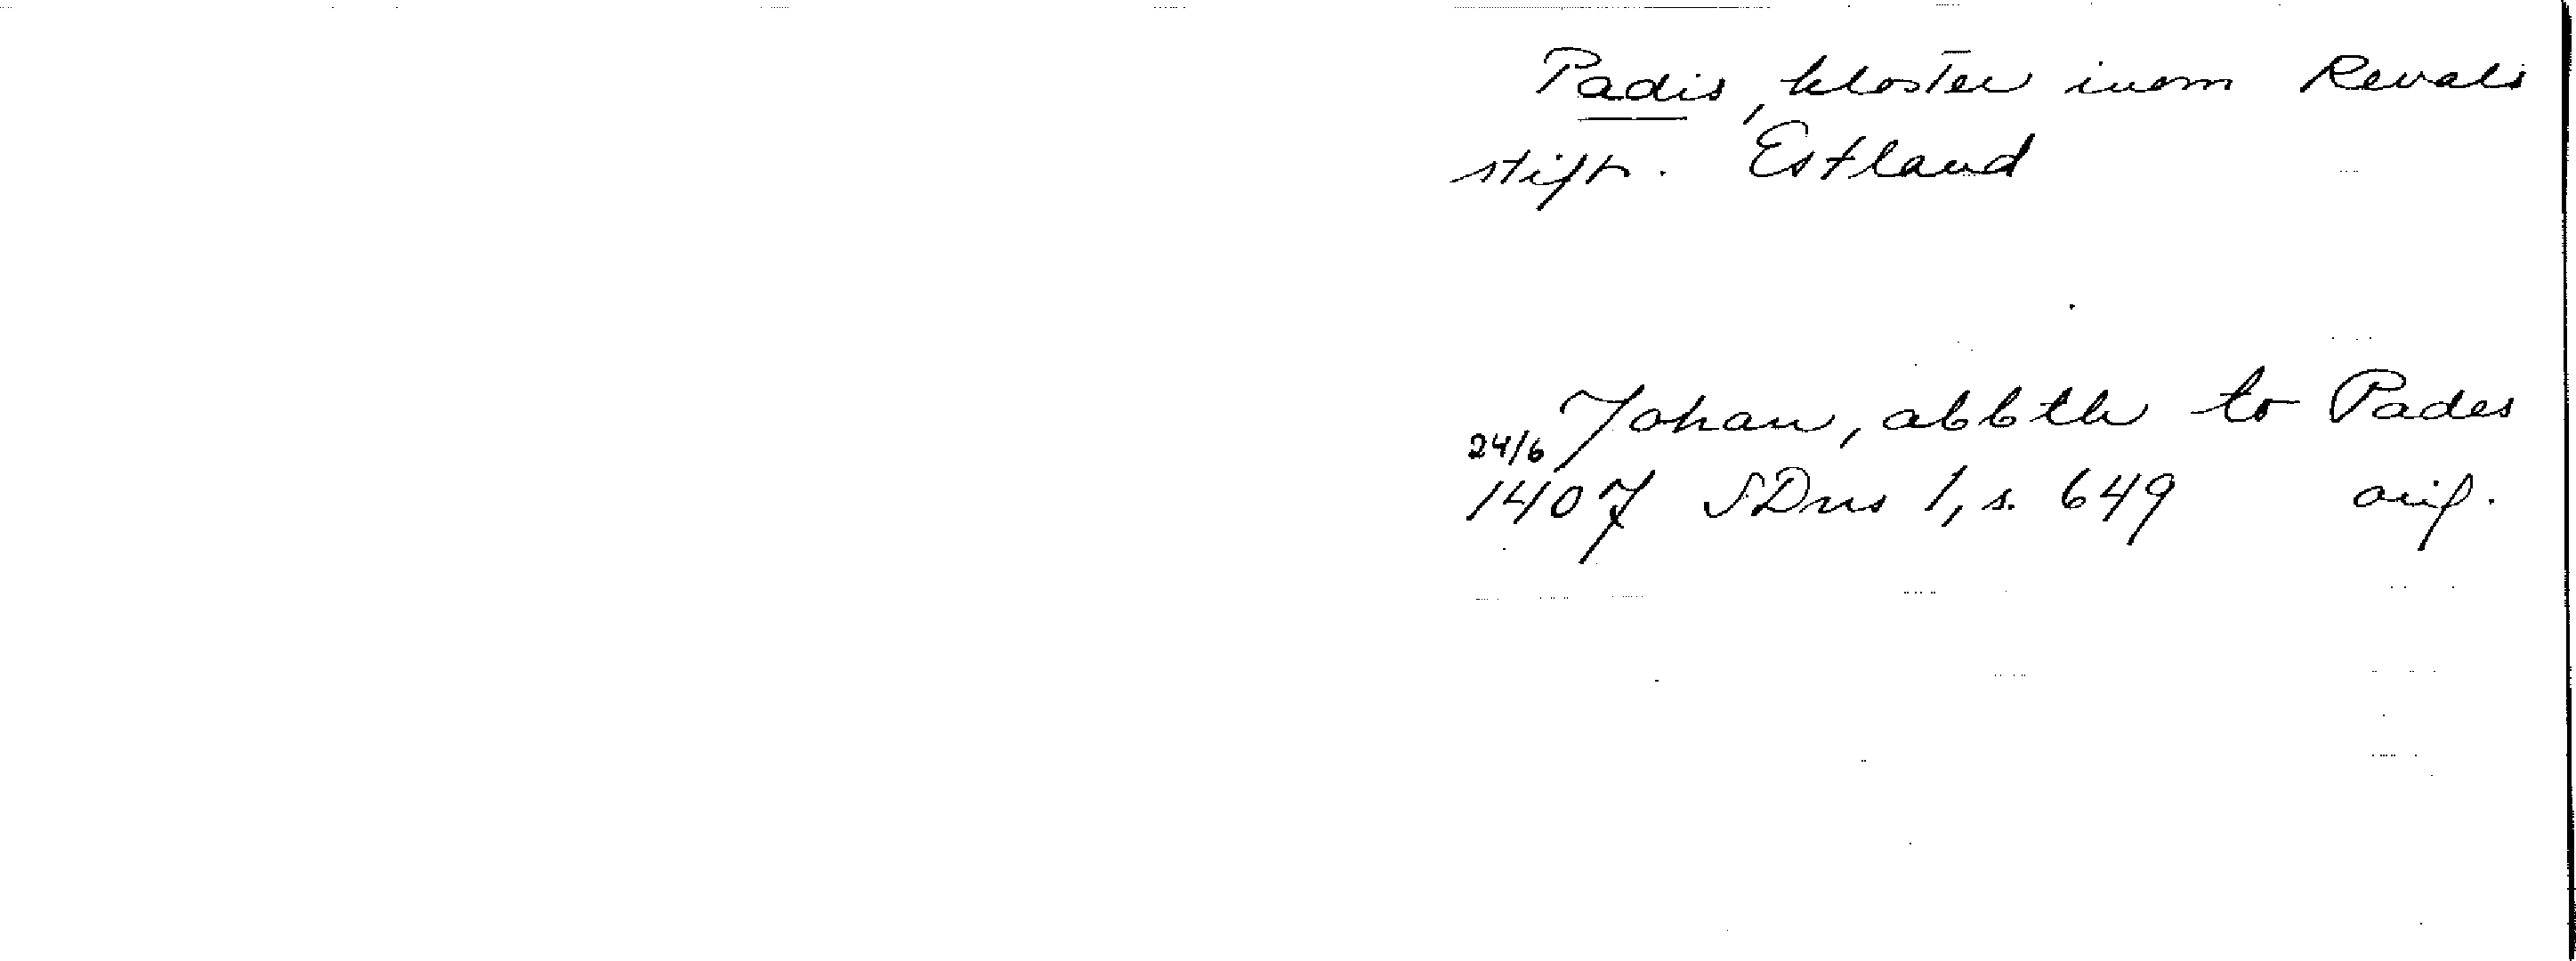 Padis, kloster inom Revals
stift. Estland
Johan, abbth to Pades
24/6
1407 SDns 1, s. 649 orig.